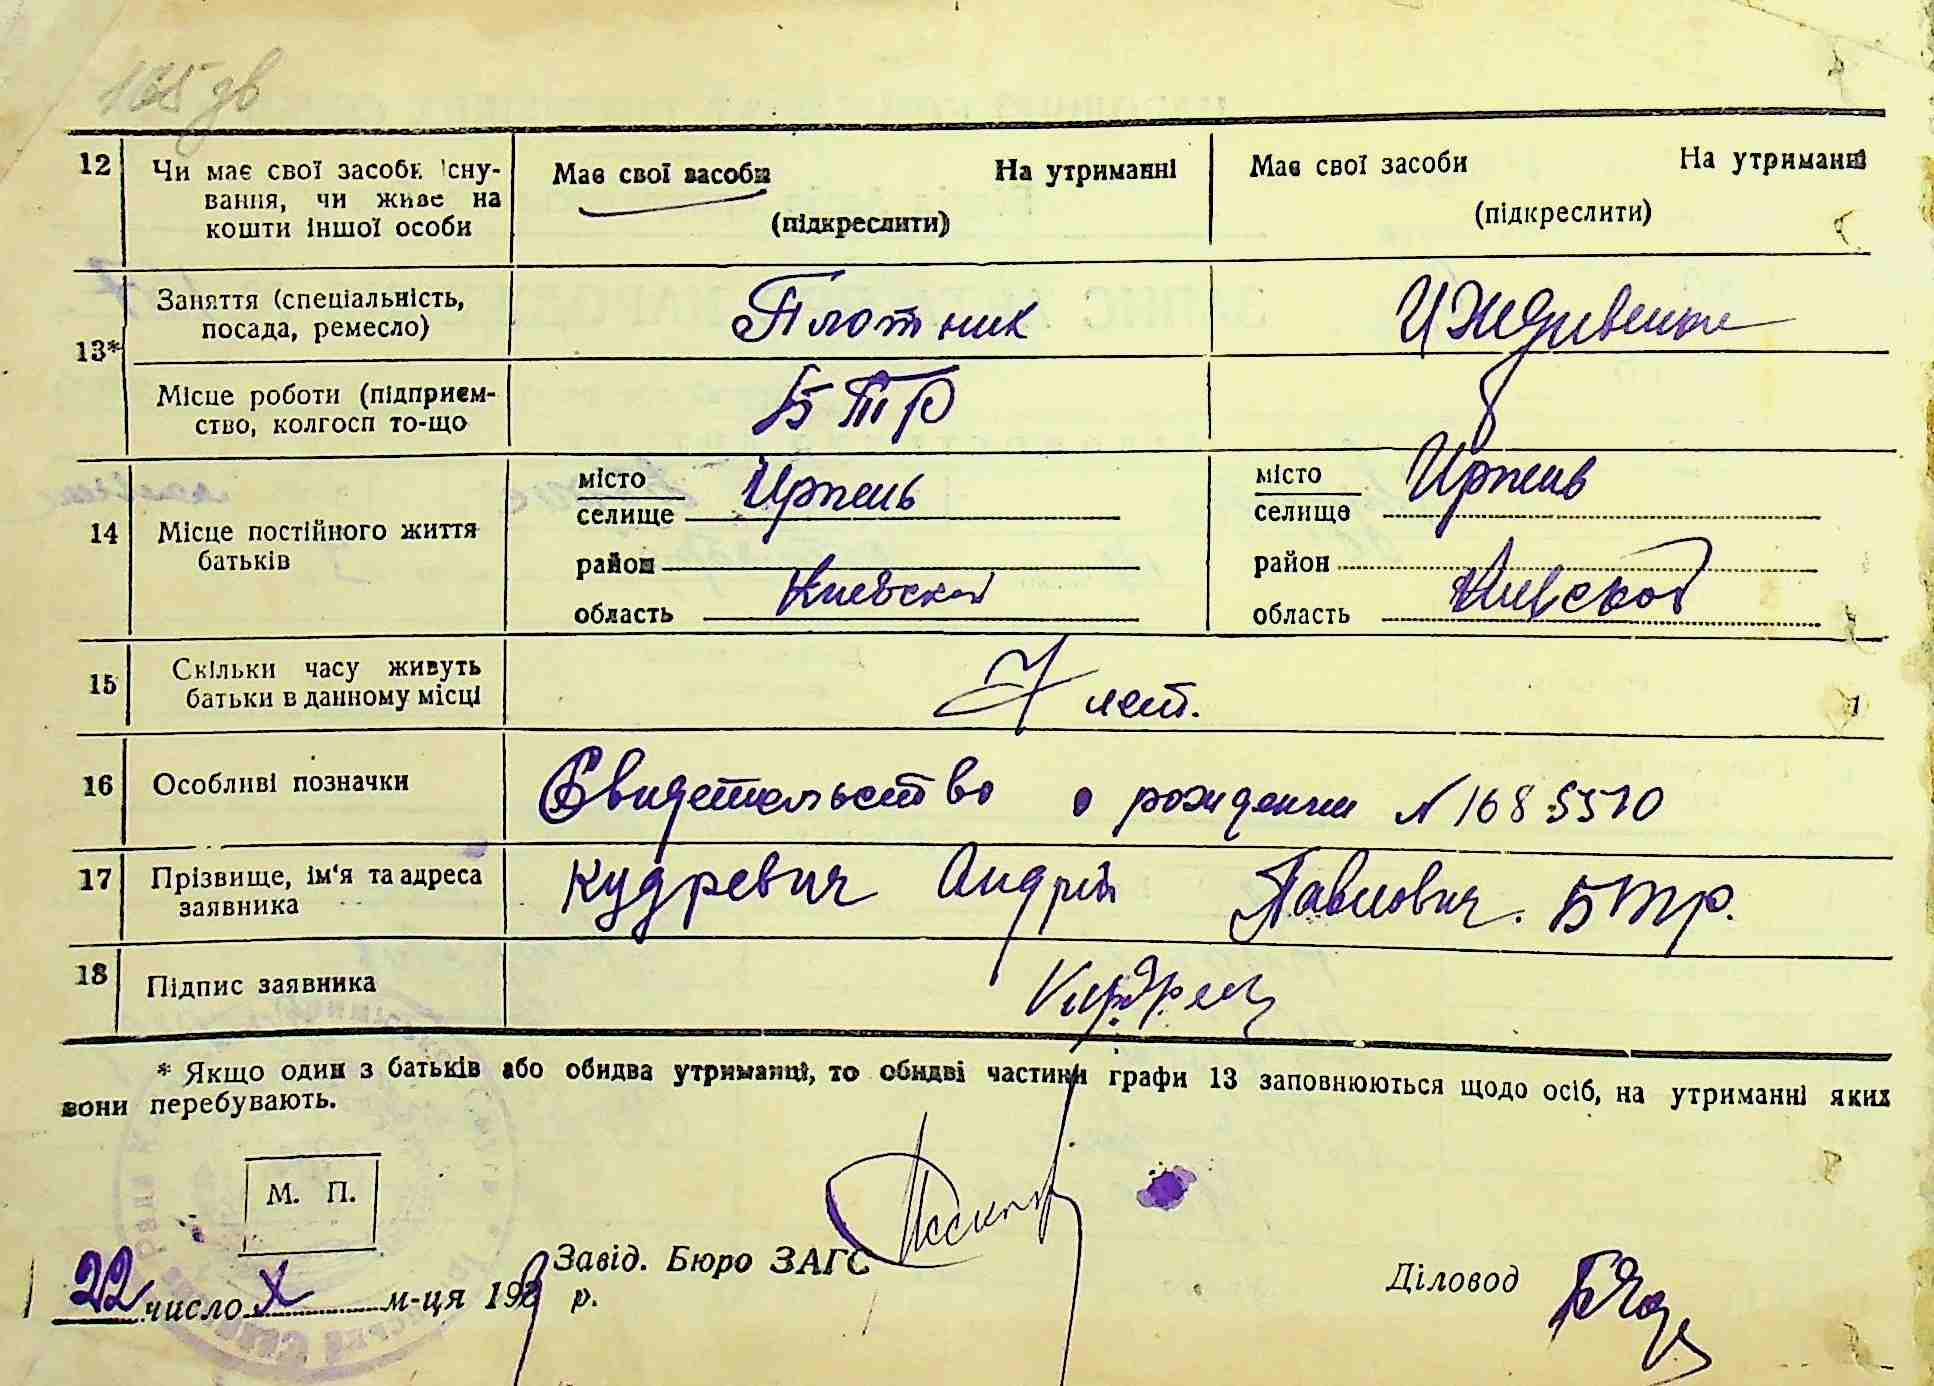 165 дв
12
Чи має свої засоби існу-
вання, чи живе на
кошти іншої особи
Має свої засоби На утриманні
(підкреслити)
Має свої засоби На утриманні
(підкреслити)
13*
Заняття (спеціальність,
посада, ремесло)
Плотник
Иждивенка
Місце роботи (підприєм-
ство, колгосп то-що
БТР
14
Місце постійного життя
батьків
місто
селище
Ирпень
район
область
Киевской
місто
селище
Ирпень
район
область
Киевской
15
Скільки часу живуть
батьки в данному місці
7 лет.
16
Особливі позначки
Свидетельство о рождении N 1685510
17
Прізвище, ім'я та адреса
заявника
Кудревич Андрій Павлович. БТР.
18
Підпис заявника
* Якщо один з батьків або обидва утриманці, то обидві частини графи 13 заповнюються щодо осіб, на утриманні яких
вони перебувають.
М. П.
22 число X м-ця 1939 р.
Завід. Бюро ЗАГС
Діловод